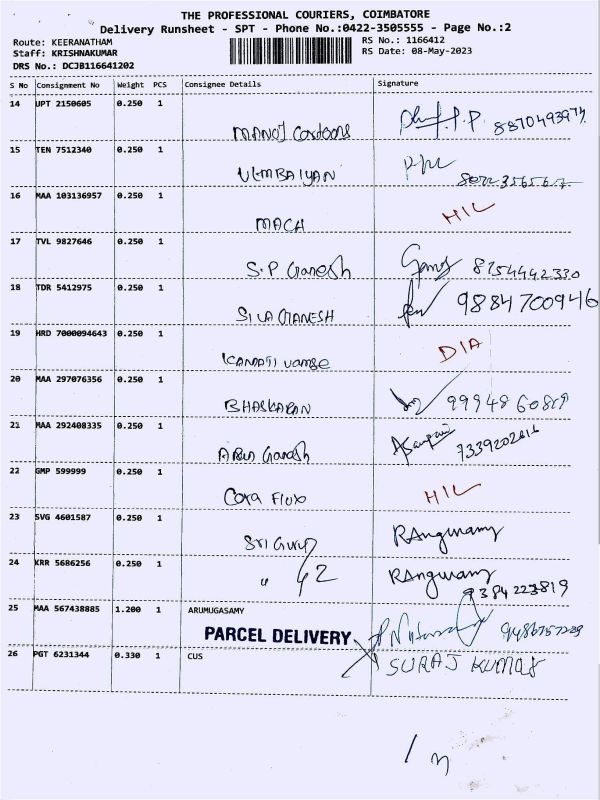 THE PROFESSIONAL COURIERS, COIMBATORE
Delivery Runsheet - SPT - Phone No.:0422-3505555 - Page No.:2
Route: KEERANATHAM RS No.: 1166412
Staff: KRISHNAKUMAR RS Date: 08-May-2023
DRS No.: DCJB116641202
S No Consignment No Weight PCS Consignee Details Signature
14 UPT 2150605 0.250 1
MANOJ Cardoons P.P. 8870493974
15 TEN 7512340 0.250 1
VEMBAIYAN
16 MAA 103136957 0.250 1
MACH HIL
17 TVL 9827646 0.250 1
S.P Ganesh 8754442330
18 TDR 5412975 0.250 1
GANESH 9884700946
19 HRD 7000094643 0.250 1
DIA
20 MAA 297076356 0.250 1
BHASKARAN 9994860819
21 MAA 292408335 0.250 1
ARUN Ganesh 7339202616
22 GMP 599999 0.250 1
Cora Flux HIL
23 SVG 4601587 0.250 1
Sri Guru RAngwamy
24 KRR 5686256 0.250 1
" 42 RAngwamy
9384223819
25 MAA 567438885 1.200 1 ARUMUGASAMY
PARCEL DELIVERY
26 PGT 6231344 0.330 1 CUS SURAJ KUMAR